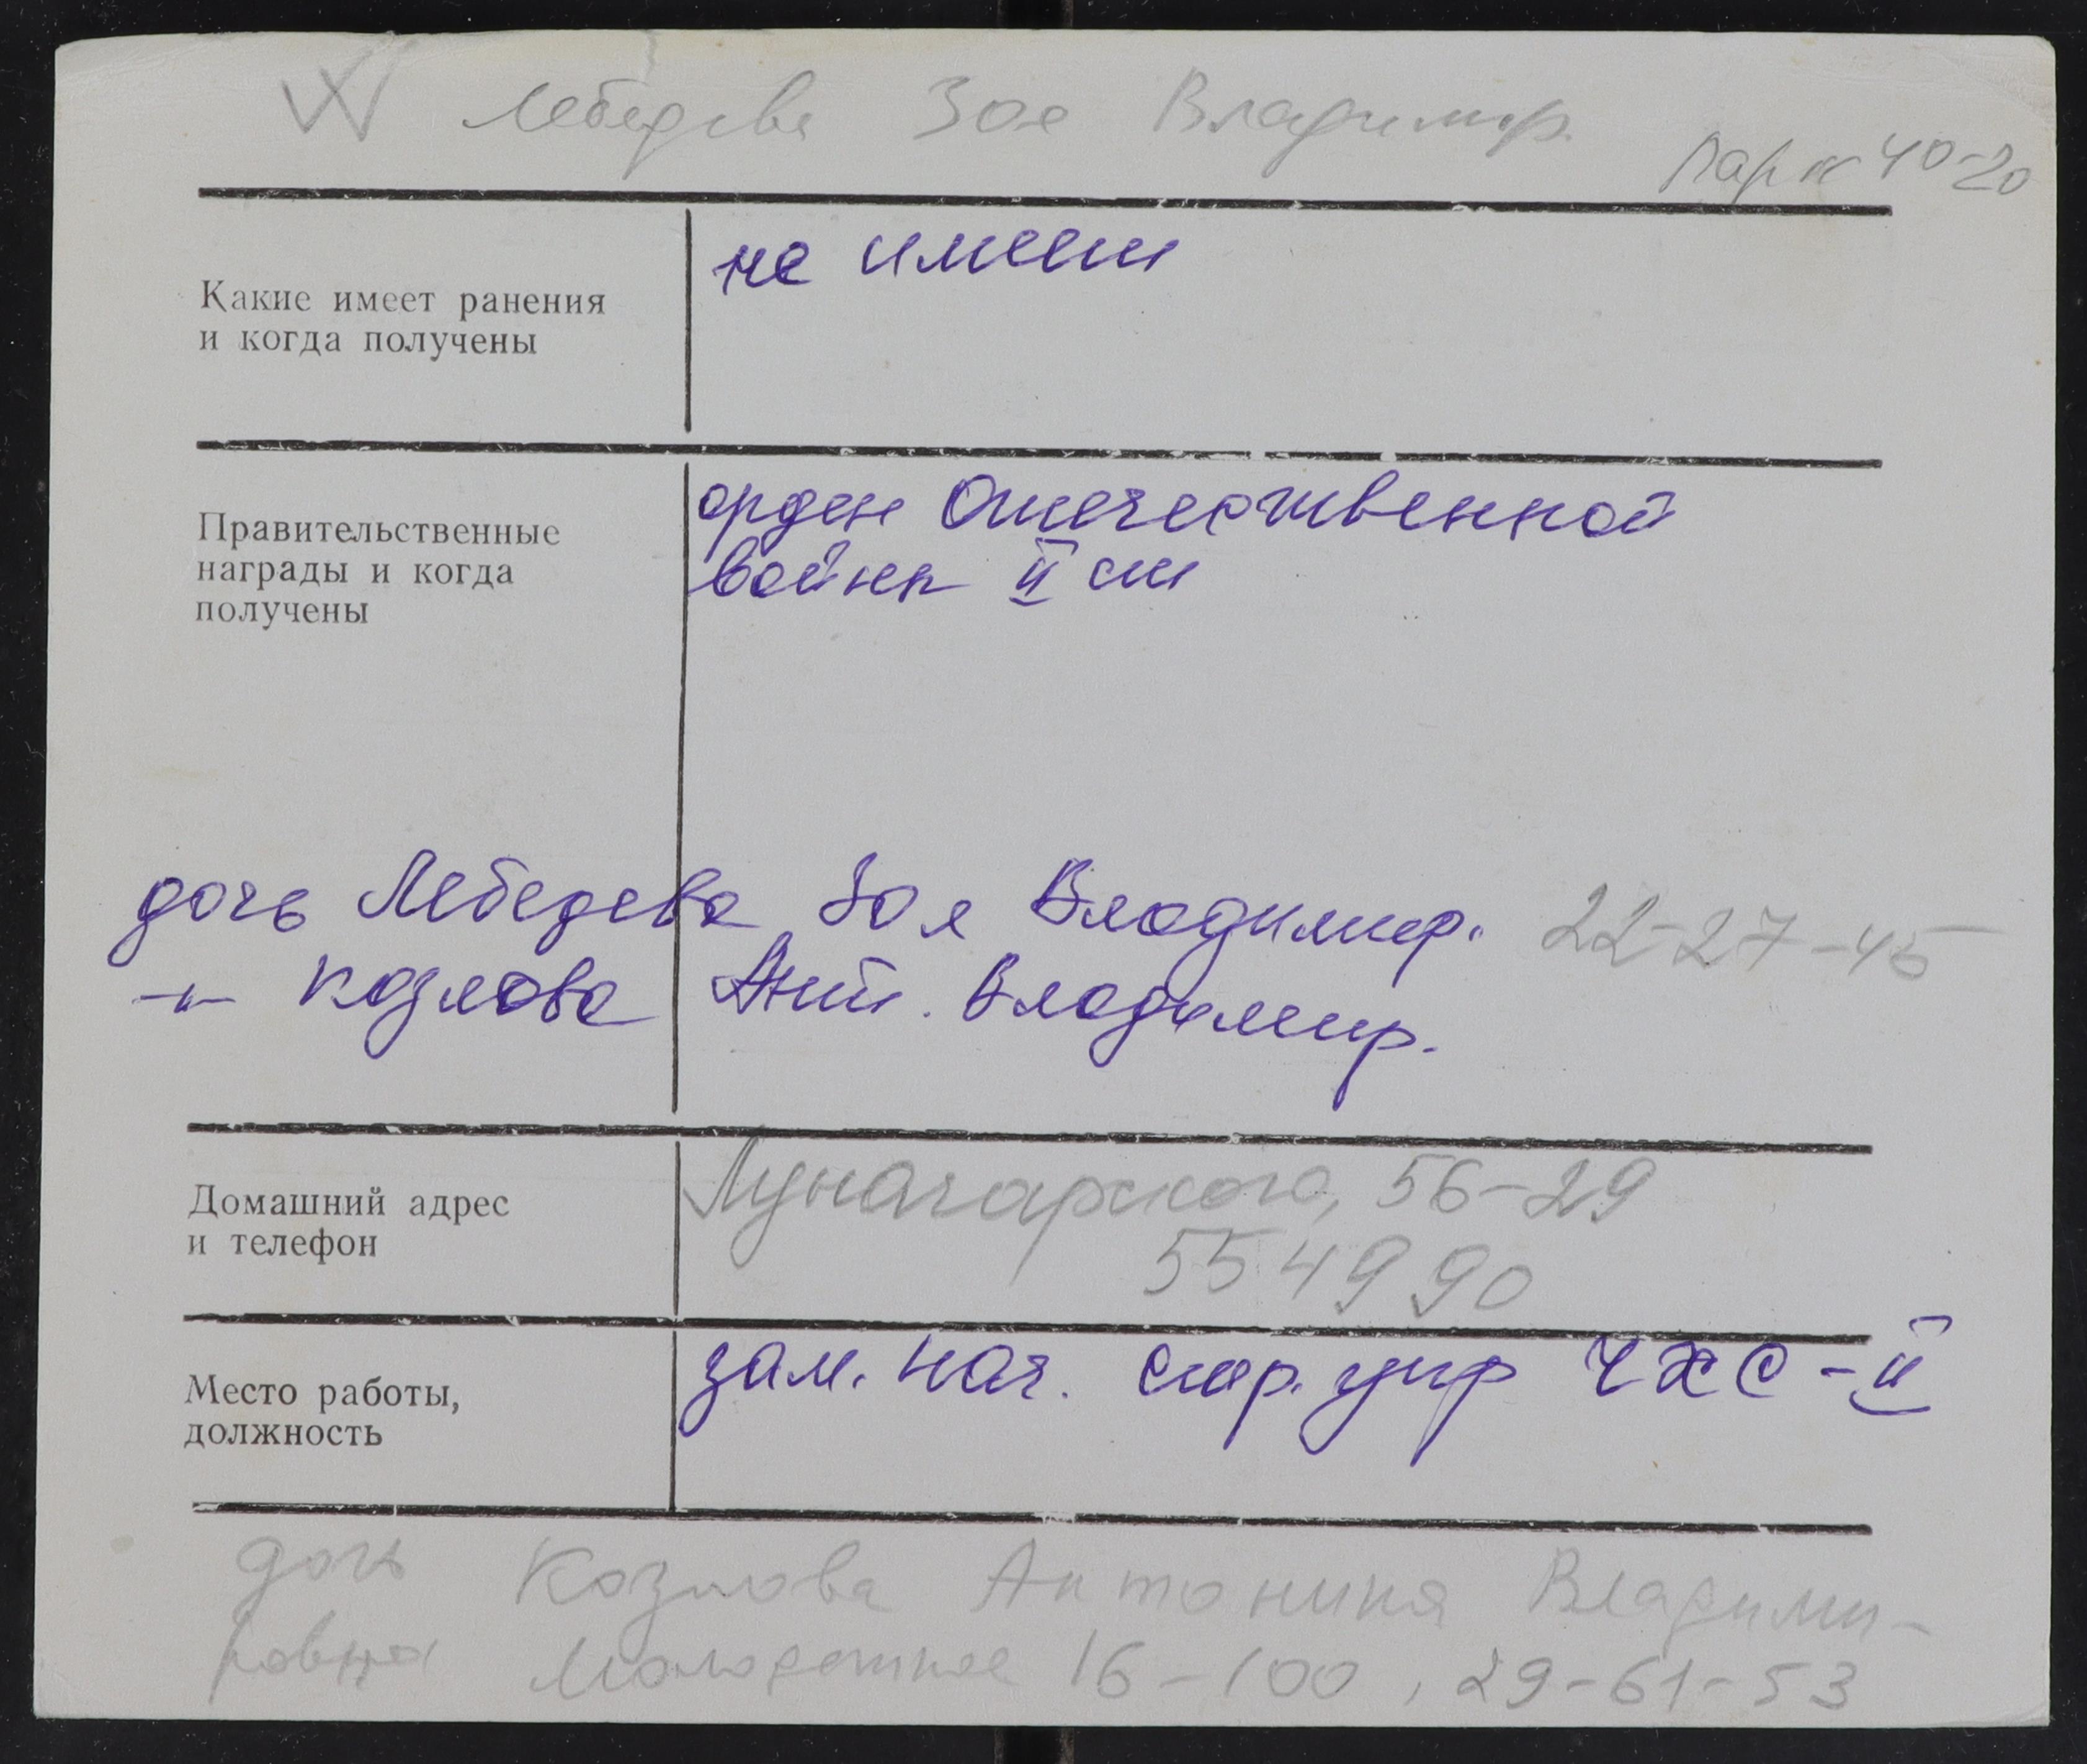 Лебедева Зоя Владимир.
Парк 40-20
не имеет
Какие имеет ранения
и когда получены
орден Отечественной
войны II ст
Правительственные
награды и когда
получены
дочь Лебедева Зоя Владимир. 22-27-45
-"- Козлова Ант. Владимир.
Луначарского, 56-29
554990
Домашний адрес
и телефон
зам. нач. стар. упр ЧХС-II
Место работы,
должность
дочь Козлова Антонина Владими-
ровна Молодежная 16-100, 29-61-53